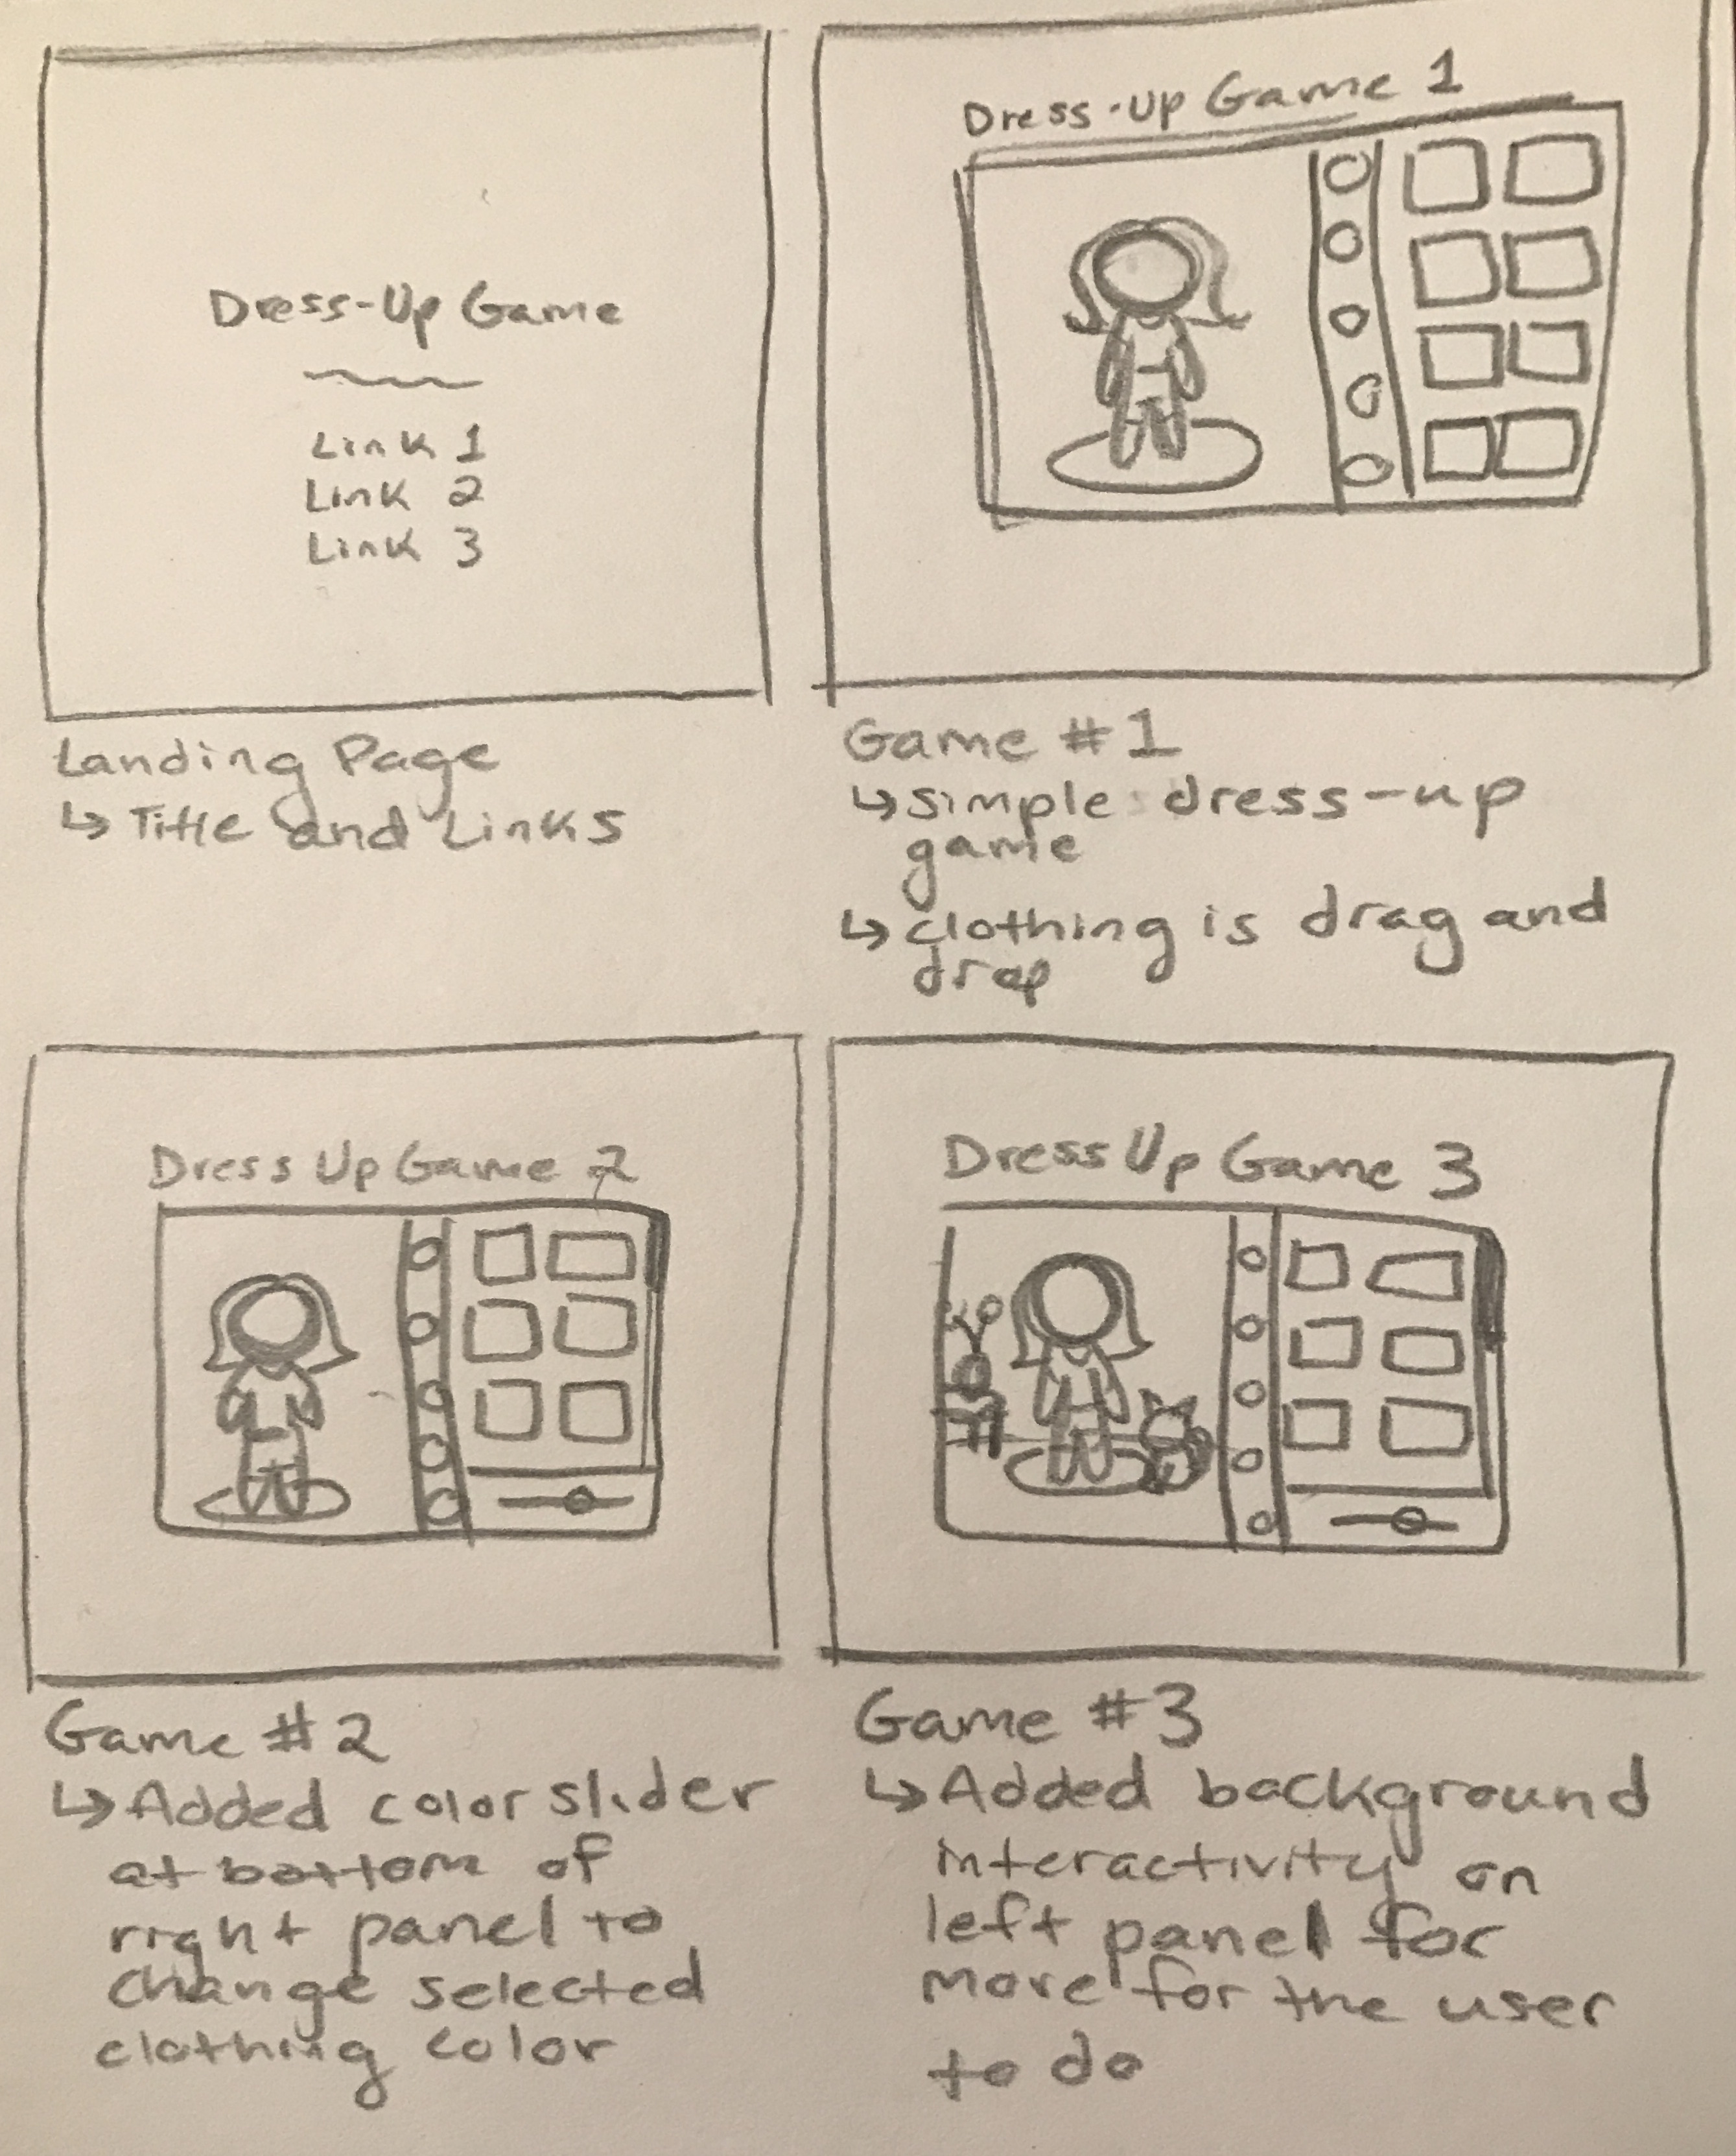 Dress-Up Game
Link 1
Link 2
Link 3
Landing Page
↳ Title and Links
Dress-up Game 1
Game #1
↳ simple dress-up
game
↳ clothing is drag and
drop
Dress Up Game 2
Game #2
↳ Added color slider
at bottom of
right panel to
change selected
clothing color
Dress Up Game 3
Game #3
↳ Added background
interactivity on
left panel for
more for the user
to do